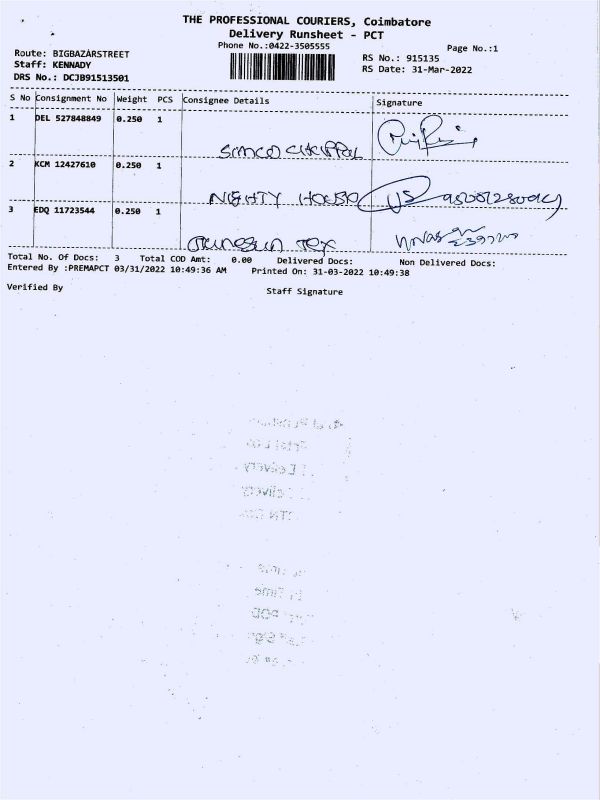 THE PROFESSIONAL COURIERS, Coimbatore
Delivery Runsheet - PCT
Phone No.:0422-3505555
Page No.:1
Route: BIGBAZARSTREET
Staff: KENNADY
DRS No.: DCJB91513501
RS No.: 915135
RS Date: 31-Mar-2022
S No Consignment No Weight PCS Consignee Details Signature
1 DEL 527848849 0.250 1
SIMCO
2 KCM 12427610 0.250 1
NIGHTY HOUSE
3 EDQ 11723544 0.250 1
Tex
Total No. Of Docs: 3 Total COD Amt: 0.00 Delivered Docs: Non Delivered Docs:
Entered By :PREMAPCT 03/31/2022 10:49:36 AM Printed On: 31-03-2022 10:49:38
Verified By Staff Signature